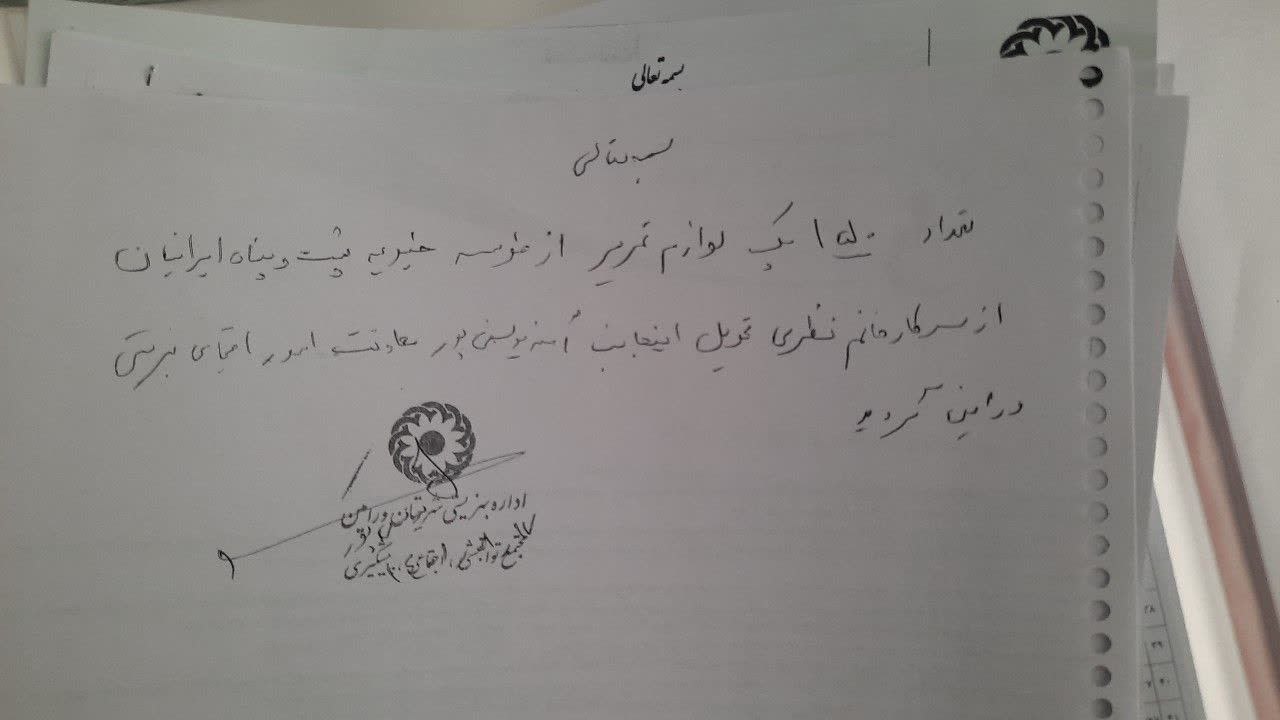 بسمه تعالی
بسمه تعالی
تعداد ۱۵۰ پک لوازم تحریر از موسسه خیریه پشت و پناه ایرانیان
از سرکار خانم نظری تحویل اینجانب آمنه یوسفی پور معاونت امور اجتماعی بهزیستی
ورامین گردید
اداره بهزیستی شهرستان ورامین
مجتمع توانبخشی، اجتماعی، پیشگیری
۲۸
۲۹